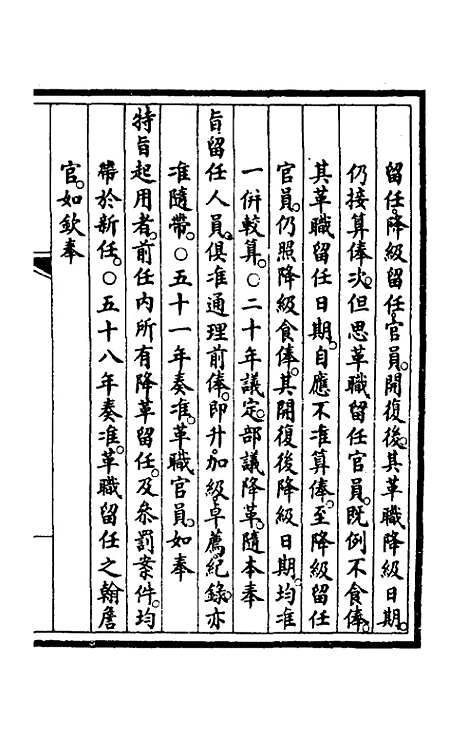 留任降級留任官員。開復後。其革職降級日期。
仍接算俸次。但思革職留任官員。既例不食俸。
其革職留任日期。自應不准算俸。至降級留任
官員。仍照降級食俸。其開復後降級日期。均准
一併較算。○二十年議定。部議降革。隨本奉
旨留任人員。俱准通理前俸。即升。加級。卓薦。紀錄。亦
准隨帶。○五十一年奏准。革職官員。如奉
特旨起用者。前任內所有降革留任。及參罰案件。均
帶於新任。○五十八年奏准。革職留任之翰詹
官。如欽奉